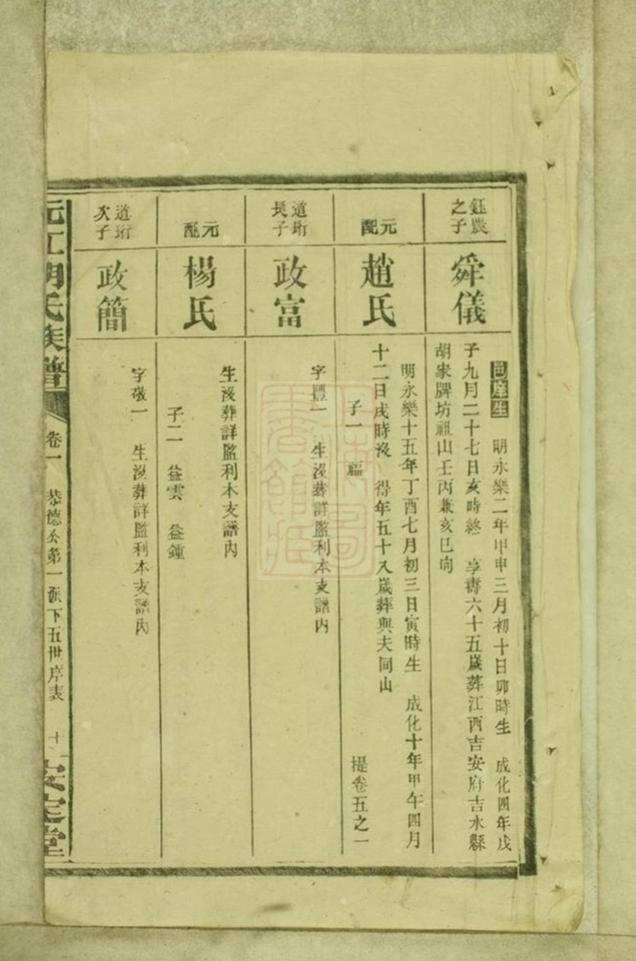 鈺農之子
舜儀
邑庠生 明永樂二年甲申三月初十日卯時生 成化四年戊
子九月二十七日亥時終 享壽六十五歲葬江西吉安府吉水縣
胡家牌坊祖山壬丙兼亥巳向
元配
趙氏
明永樂十五年丁酉七月初三日寅時生 成化十年甲午四月
十二日戌時沒 得年五十八歲葬與夫同山
子一 福 提卷五之一
道珩長子
政富
字豐一 生沒葬詳監利本支譜內
元配
楊氏
生沒葬詳監利本支譜內
子二 益雲 益鍾
道珩次子
政簡
字敬一 生沒葬詳監利本支譜內
沅江胡氏族譜 卷一 恭德公第一派下五世序表 十 安定堂